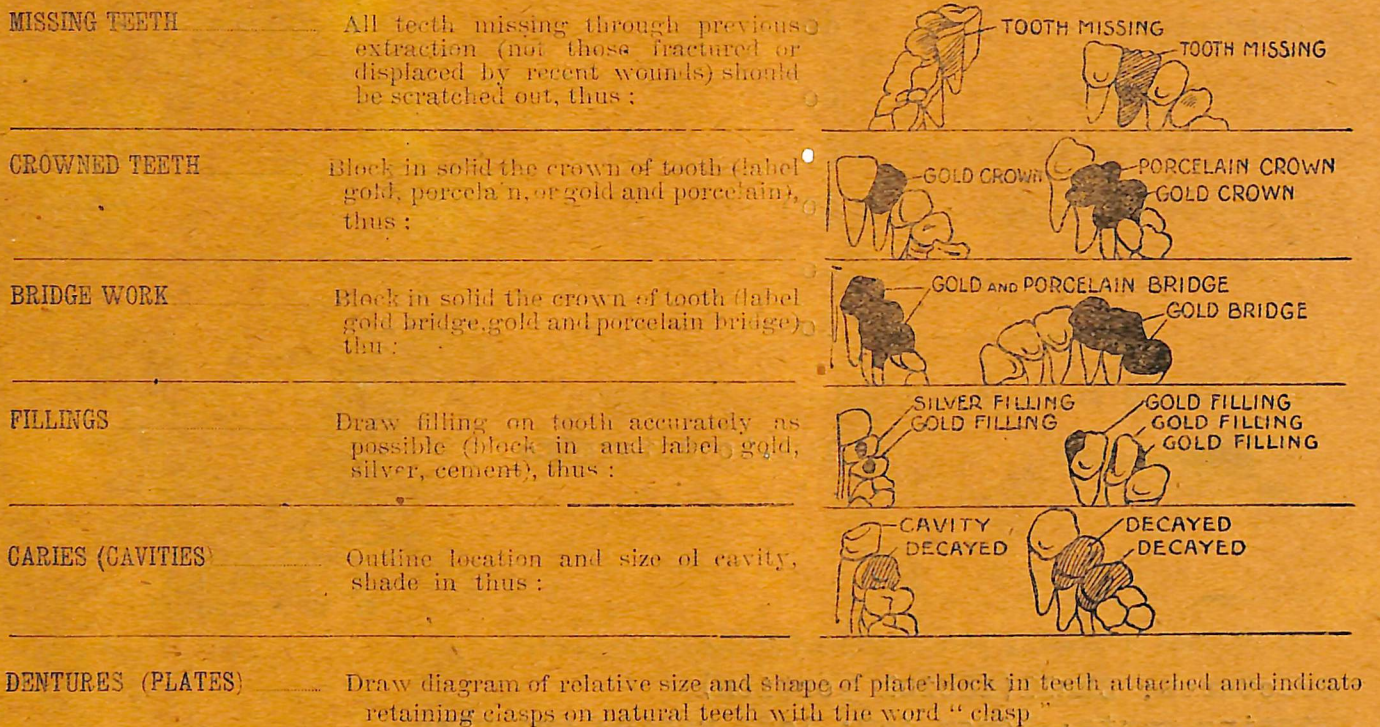 MISSING TEETH All teeth missing through previous
extraction (not those fractured or
displaced by recent wounds) should
be scratched out, thus :
TOOTH MISSING
TOOTH MISSING
CROWNED TEETH Block in solid the crown of tooth (label
gold, porcela n, or gold and porcelain),
thus :
GOLD CROWN
PORCELAIN CROWN
GOLD CROWN
BRIDGE WORK Block in solid the crown of tooth (label
gold bridge, gold and porcelain bridge)
thu :
GOLD AND PORCELAIN BRIDGE
GOLD BRIDGE
FILLINGS Draw filling on tooth accurately as
possible (block in and label gold,
silver, cement), thus :
SILVER FILLING
GOLD FILLING
GOLD FILLING
GOLD FILLING
GOLD FILLING
CARIES (CAVITIES Outline location and size of cavity,
shade in thus :
CAVITY
DECAYED
DECAYED
DECAYED
DENTURES (PLATES) Draw diagram of relative size and shape of plate-block in teeth attached and indicate
retaining clasps on natural teeth with the word " clasp "